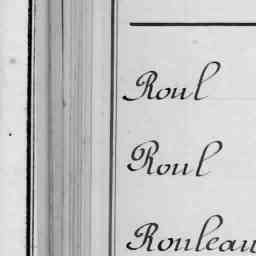 Roul
Roul
Rouleau